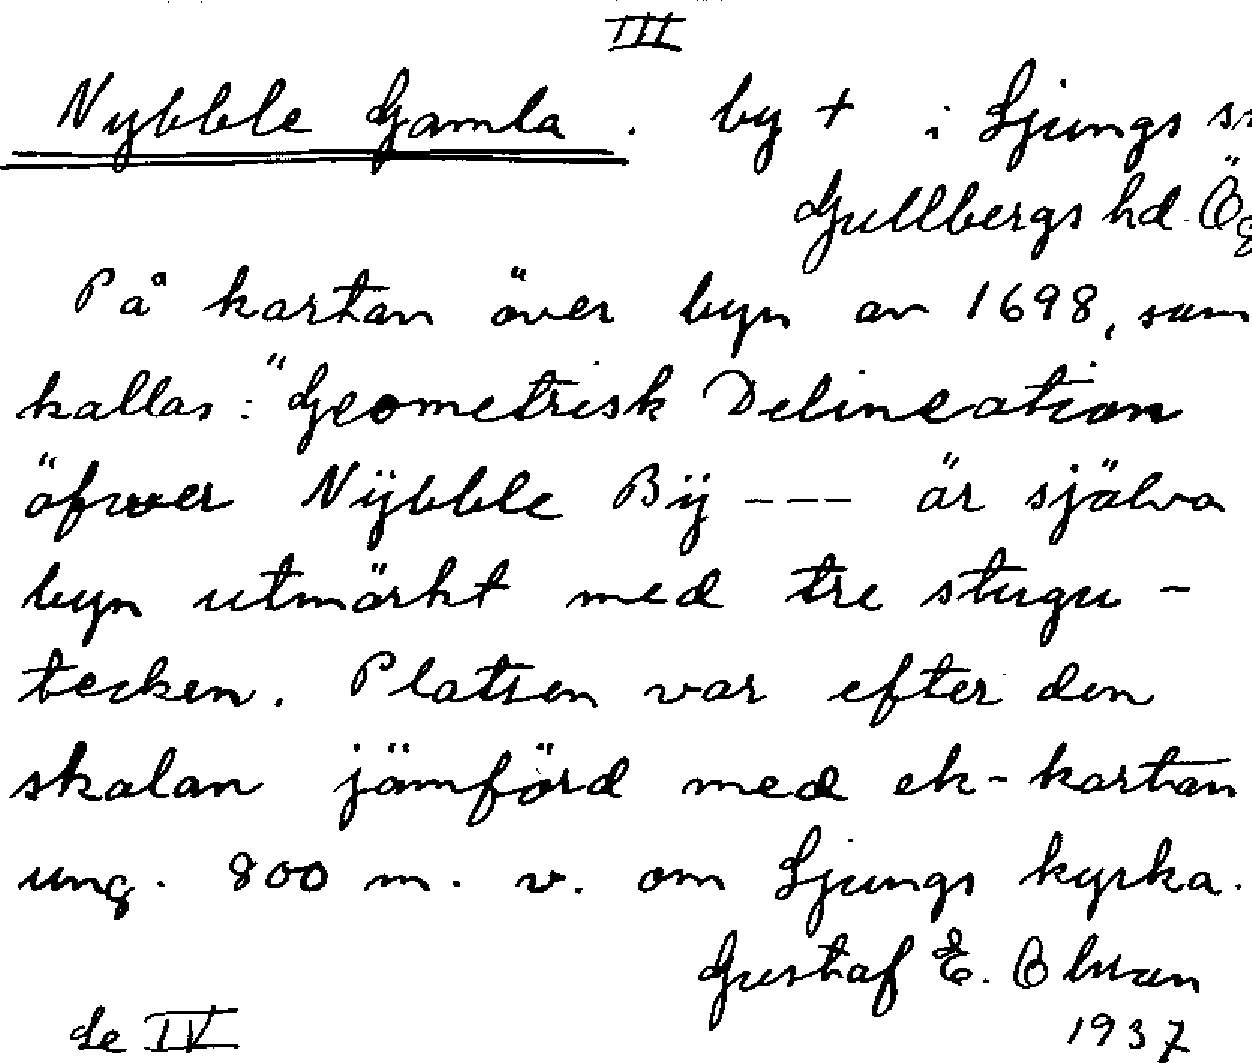 III
Nybble Gamla. by + i Ljungs sn
Gullbergs hd. Ög
På kartan över byn av 1698, som
kallas: "Geometrisk Delineation
öfwer Nÿbble Bÿ --- är själva
byn utmärkt med tre stugu-
tecken. Platsen var efter den
skalan jämförd med ek-kartan
ung. 800 m. v. om Ljungs kyrka.
Gustaf E. Olsson
1937
Se IV